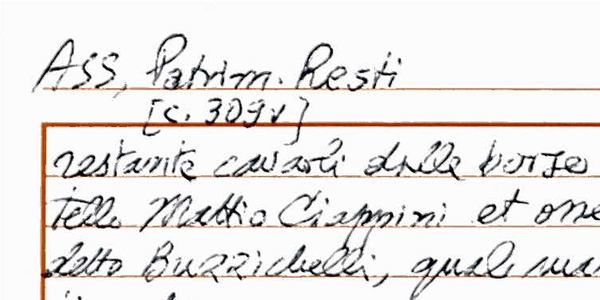 ASS, Patrim. Resti
[c. 309v]
restante cavarli dalle borse
telle Mattio Ciappini et one
detto Buzzichelli, quale